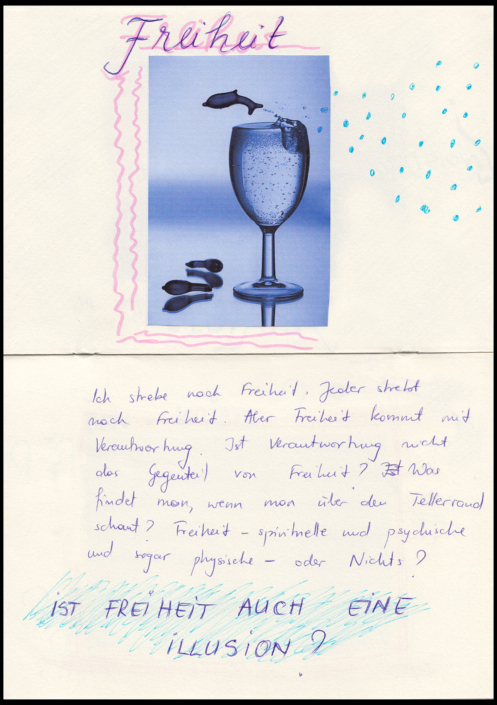 Freiheit
Ich strebe nach Freiheit. Jeder strebt
nach Freiheit. Aber Freiheit kommt mit
Verantwortung. Ist Verantwortung nicht
das Gegenteil von Freiheit? Was
findet man, wenn man über den Tellerrand
schaut? Freiheit - spirituelle und psychische
und sogar physische - oder Nichts?
IST FREIHEIT AUCH EINE
ILLUSION?